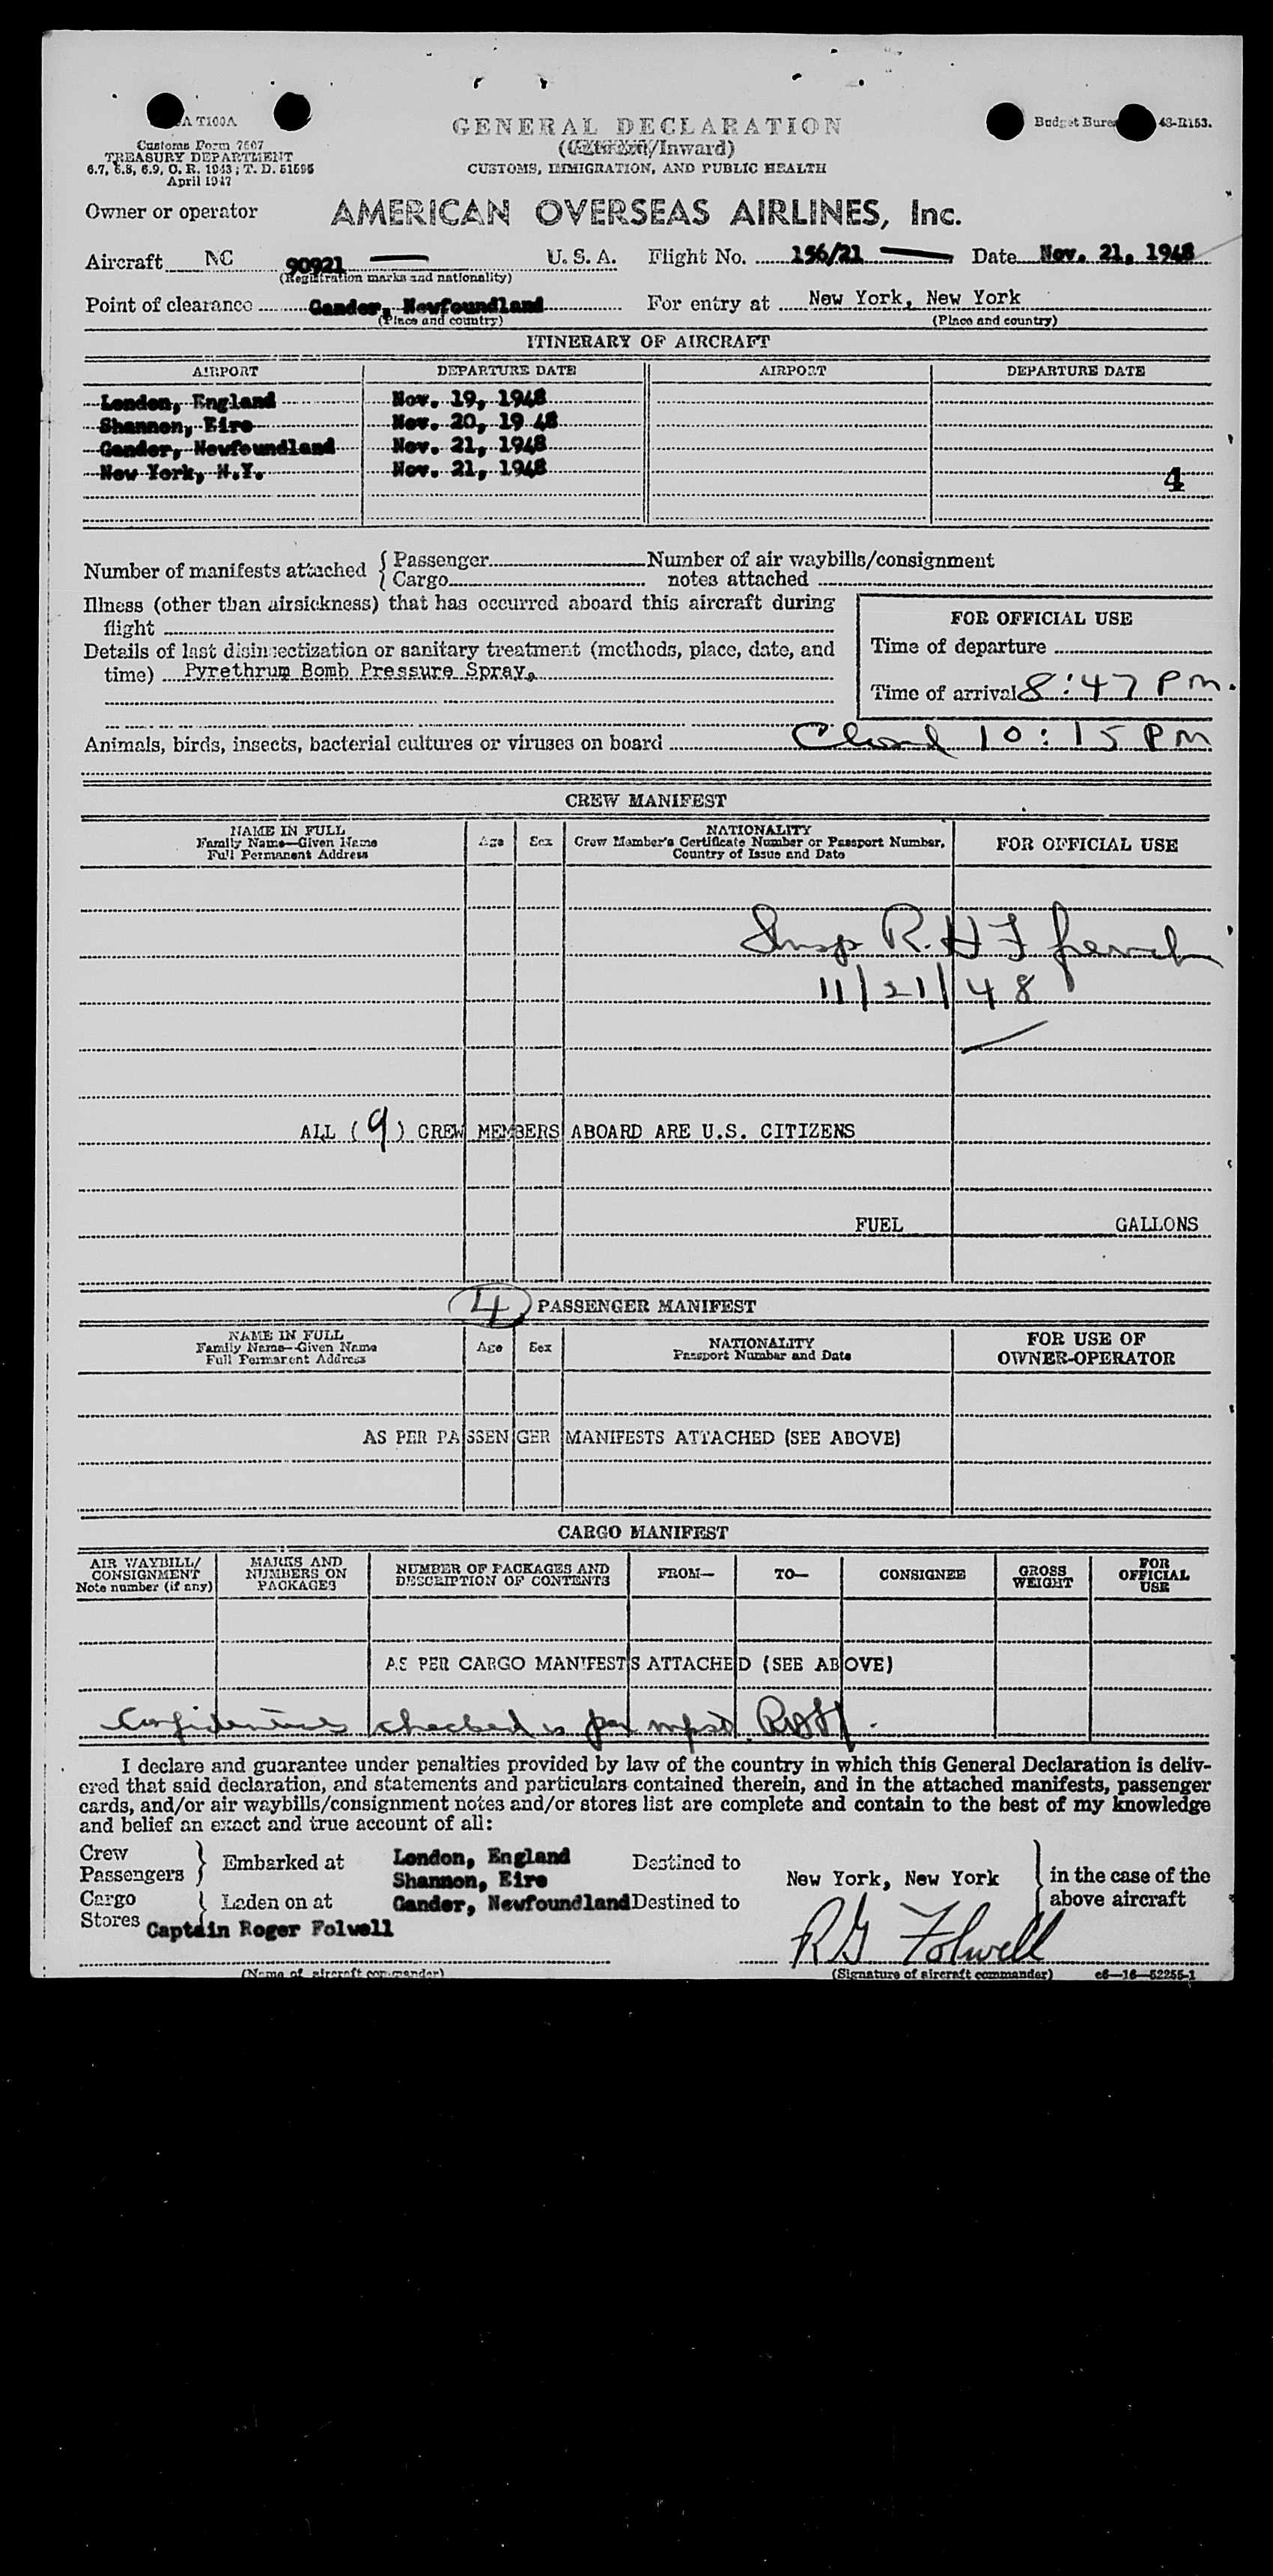 GENERAL DECLARATION
(Outward/Inward)
CUSTOMS, IMMIGRATION, AND PUBLIC HEALTH
A T100A
Customs Form 7507
TREASURY DEPARTMENT
6.7, 6.8, 6.9, C. R. 1943; T. D. 51595
April 1947
Budget Bureau 48-R153.
Owner or operator AMERICAN OVERSEAS AIRLINES, Inc.
Aircraft NC 90921 U. S. A. Flight No. 156/21 Date Nov. 21, 1948
(Registration marks and nationality)
Point of clearance Gander, Newfoundland For entry at New York, New York
(Place and country) (Place and country)
ITINERARY OF AIRCRAFT
AIRPORT DEPARTURE DATE AIRPORT DEPARTURE DATE
London, England Nov. 19, 1948
Shannon, Eire Nov. 20, 19 48
Gander, Newfoundland Nov. 21, 1948
New York, N.Y. Nov. 21, 1948
4
Number of manifests attached { Passenger Number of air waybills/consignment
Cargo notes attached
Illness (other than airsickness) that has occurred aboard this aircraft during
flight
Details of last disinsectization or sanitary treatment (methods, place, date, and
time) Pyrethrum Bomb Pressure Spray.
FOR OFFICIAL USE
Time of departure
Time of arrival 8:47 PM.
Animals, birds, insects, bacterial cultures or viruses on board
10:15 PM
CREW MANIFEST
NAME IN FULL
Family Name—Given Name
Full Permanent Address
Age Sex
NATIONALITY
Crew Member's Certificate Number or Passport Number,
Country of Issue and Date
FOR OFFICIAL USE
Insp R. H F French
11/21/48
ALL (9) CREW MEMBERS ABOARD ARE U.S. CITIZENS
FUEL GALLONS
4 PASSENGER MANIFEST
NAME IN FULL
Family Name—Given Name
Full Permanent Address
Age Sex
NATIONALITY
Passport Number and Date
FOR USE OF
OWNER-OPERATOR
AS PER PASSENGER MANIFESTS ATTACHED (SEE ABOVE)
CARGO MANIFEST
AIR WAYBILL/
CONSIGNMENT
Note number (if any)
MARKS AND
NUMBERS ON
PACKAGES
NUMBER OF PACKAGES AND
DESCRIPTION OF CONTENTS
FROM— TO— CONSIGNEE
GROSS
WEIGHT
FOR
OFFICIAL
USE
AS PER CARGO MANIFESTS ATTACHED (SEE ABOVE)
checked per
I declare and guarantee under penalties provided by law of the country in which this General Declaration is deliv-
ered that said declaration, and statements and particulars contained therein, and in the attached manifests, passenger
cards, and/or air waybills/consignment notes and/or stores list are complete and contain to the best of my knowledge
and belief an exact and true account of all:
Crew
Passengers } Embarked at London, England
Shannon, Eire Destined to New York, New York } in the case of the
above aircraft
Cargo
Stores { Laden on at Gander, Newfoundland Destined to
Captain Roger Folwell
RG Folwell
(Name of aircraft commander) (Signature of aircraft commander) c6—16—52255-1